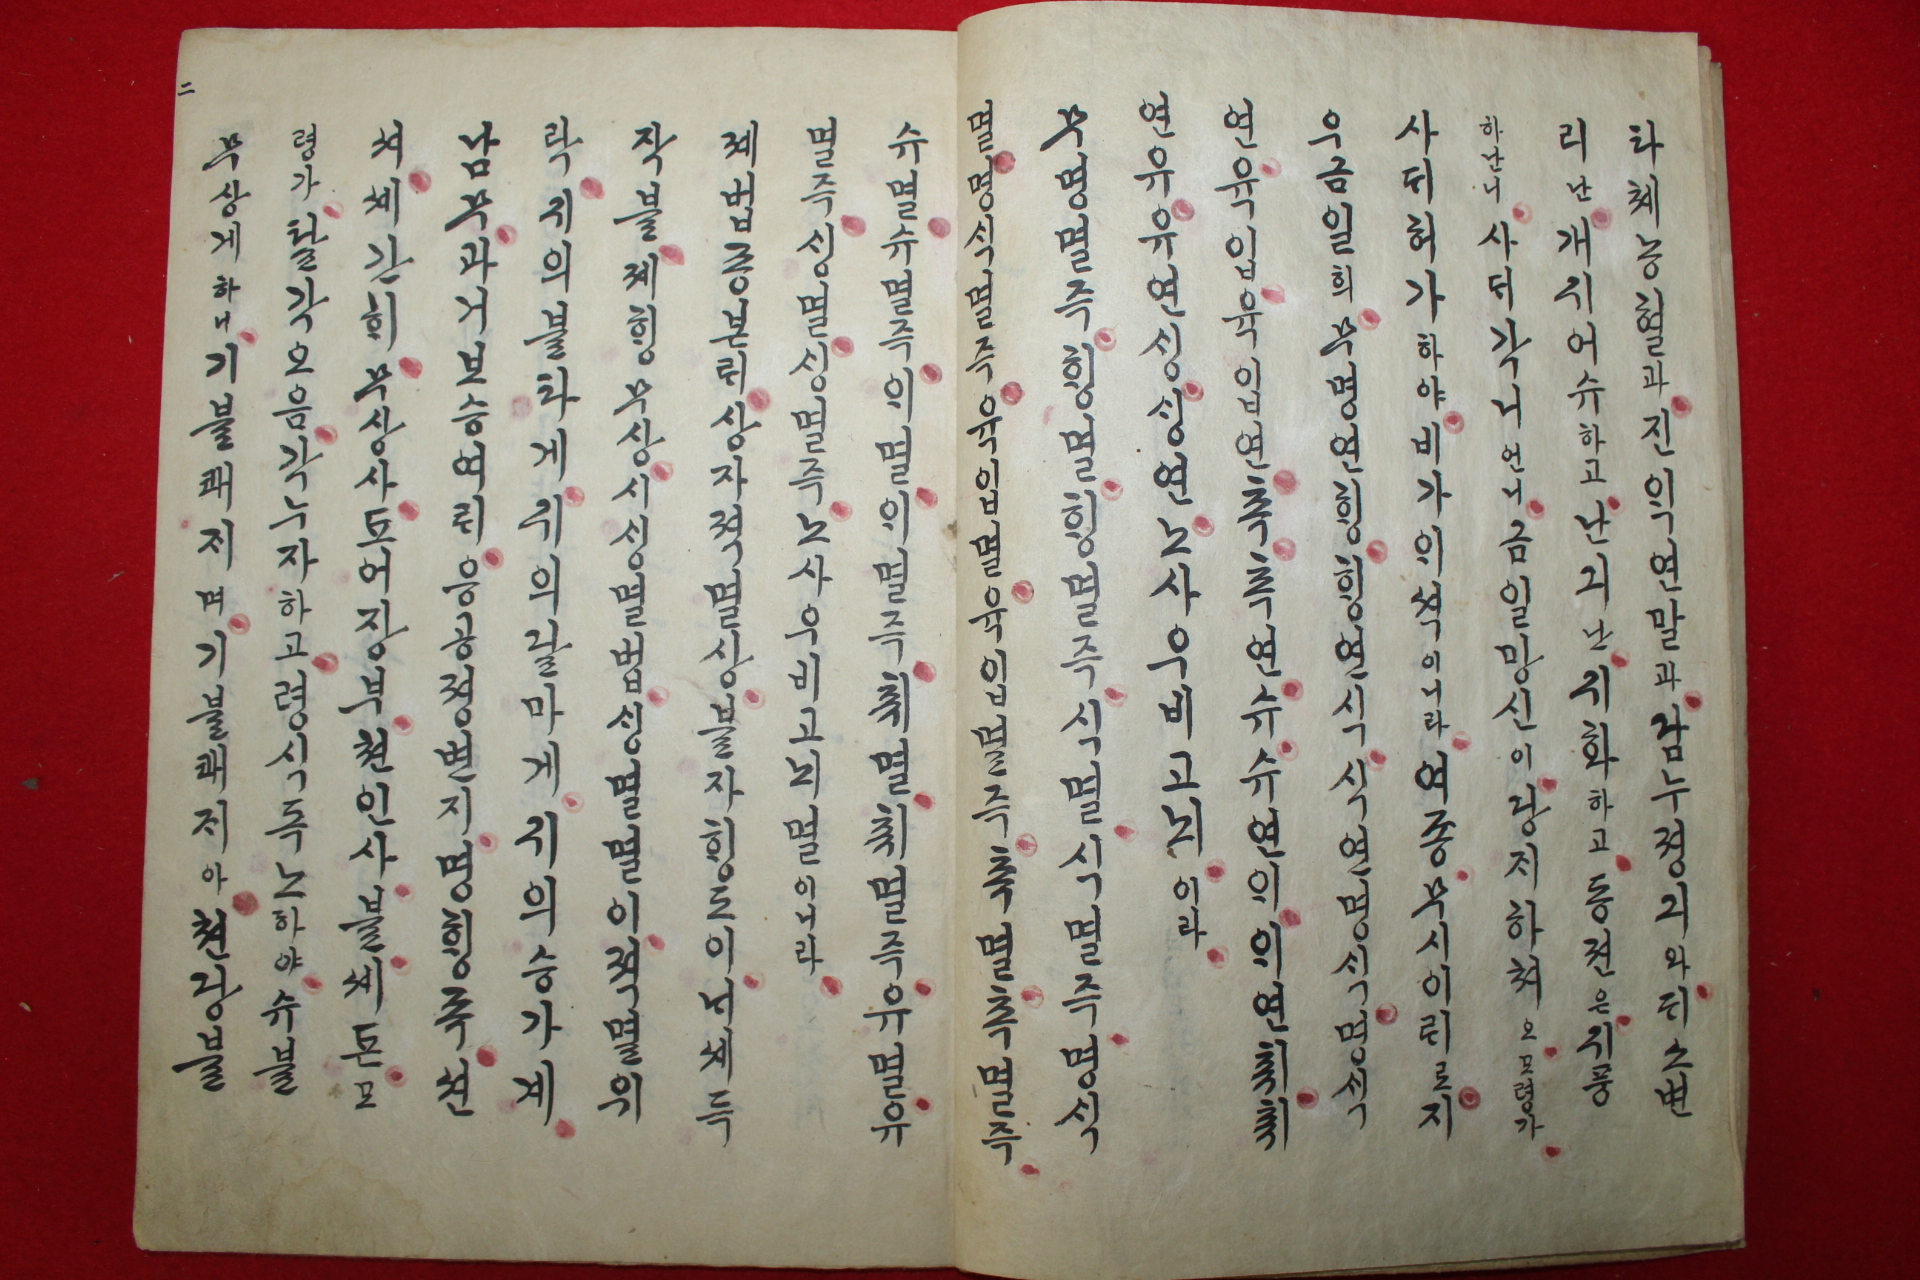 타체농혈과진익연말과담누졍긔와ᄃᆡ소변
리난개귀어슈하고난긔난귀화하고동젼은귀풍
하난니사ᄃᆡ각니언니금일망신이당지하쳐오모령가
사ᄃᆡ허가하야비가이셕이니라여종무시이ᄅᆡ로지
우금일희무명연힝힝연식식연명식명식
연육입육입연촉촉연슈슈연의의연취취
연유유연싱싱연노사우비고뇌이라
무명멸즉힝멸힝멸즉식멸식멸즉명식
멸명식멸즉육입멸육입멸즉촉멸촉멸즉
슈멸슈멸즉의멸의멸즉취멸취멸즉유멸유
멸즉싱멸싱멸즉노사우비고뇌멸이니라
졔법종본ᄅᆡ상자젹멸상불자힝도이ᄂᆡ셰득
작불졔힝무상시싱멸법싱멸멸이젹멸위
락귀의불타계귀의달마계귀의승가계
남무과거보승여ᄅᆡ응공졍변지명힝죡션
셔셰간히무상사도어장부쳔인사불셰돈모
령가탈각오음각누자하고령식독노하야슈불
무상계하니기불쾌저며기불쾌저아쳔당불
二